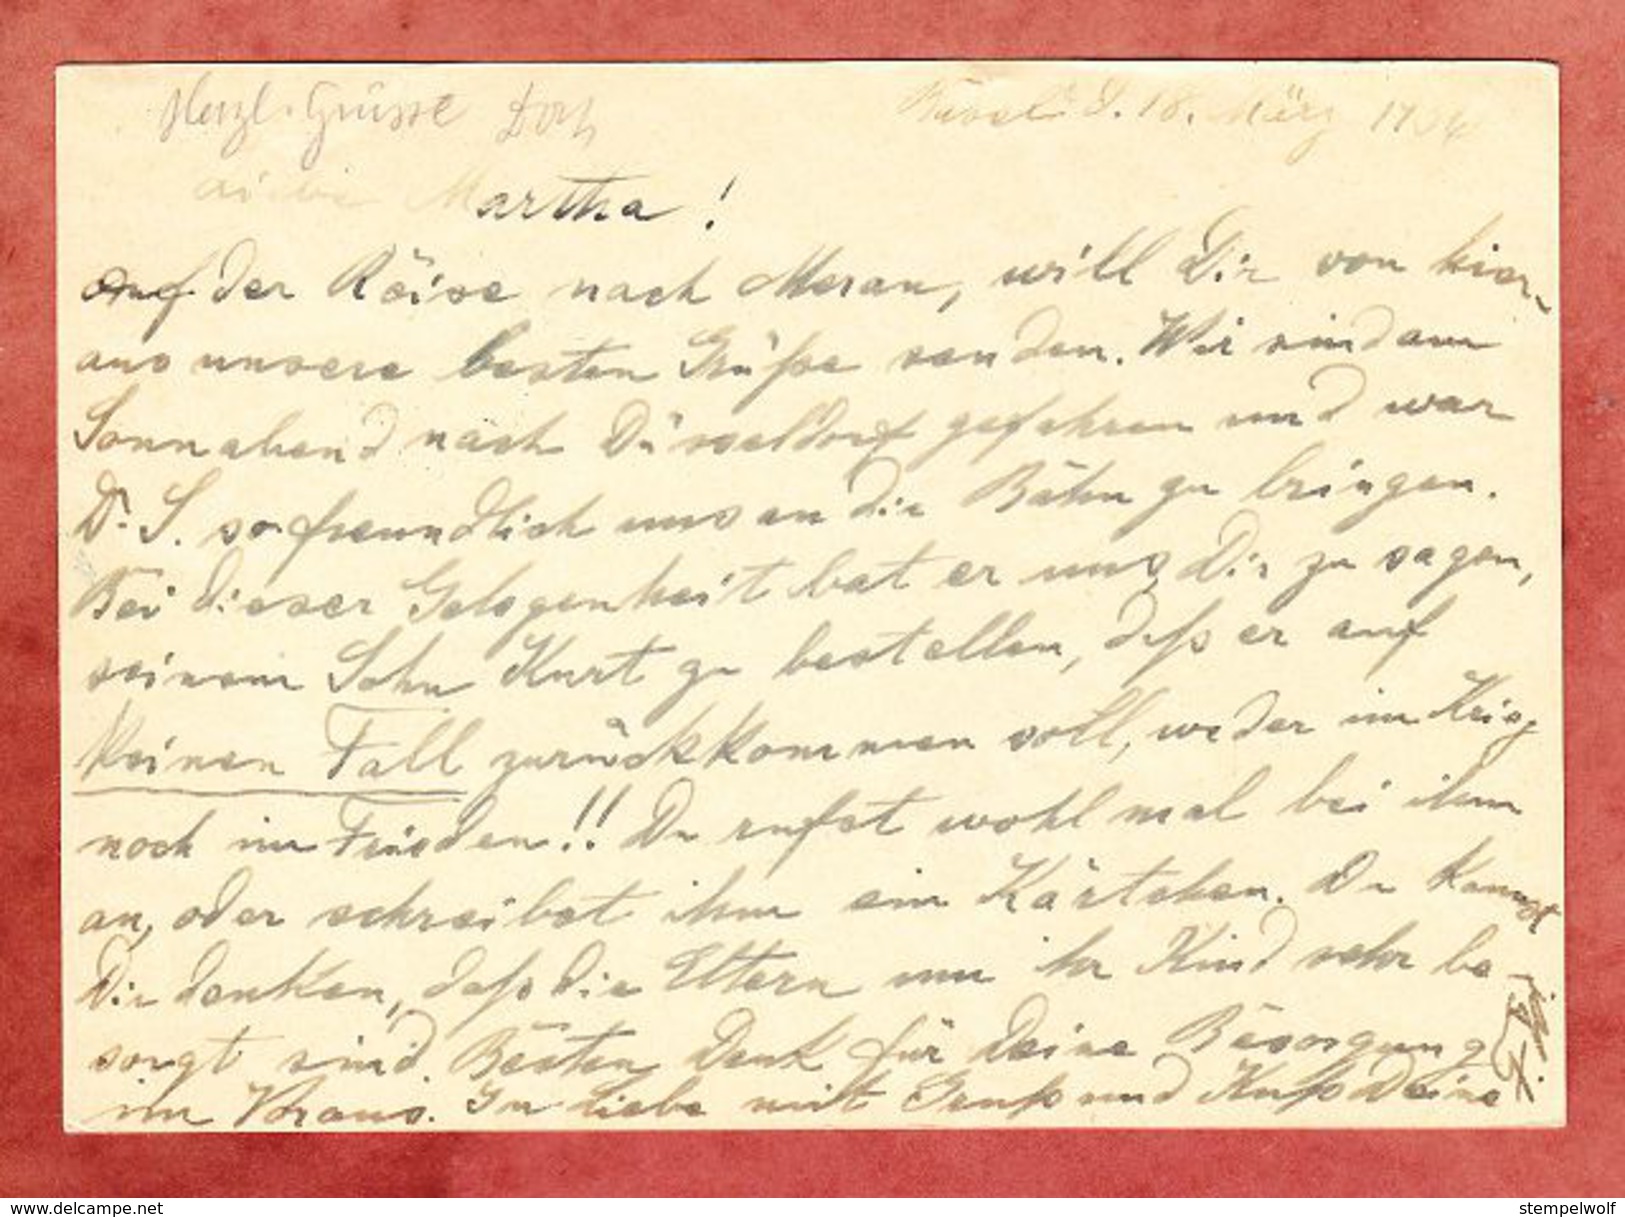 Herzl. Grüsse
Basel d. 18. März
Martha!
Auf der Reise nach Meran, will Dir von hier
aus unsere besten Grüße senden. Wir sind am
Sonnabend nach Düsseldorf gefahren und war
Dr. S. so freundlich uns an die Bahn zu bringen.
Bei dieser Gelegenheit bat er uns Dir zu sagen,
seinem Sohn Kurt zu bestellen, daß er auf
keinen Fall zurückkommen soll, weder im Krieg
noch im Frieden!! Du rufst wohl mal bei ihm
an, oder schreibst ihm ein Kärtchen. Du kannst
Dir denken, daß die Eltern um ihr Kind sehr be-
sorgt sind. Besten Dank für Deine Besorgung
im Voraus. In Liebe mit Gruß und Kuß Deine
delcampe.net
stempelwolf